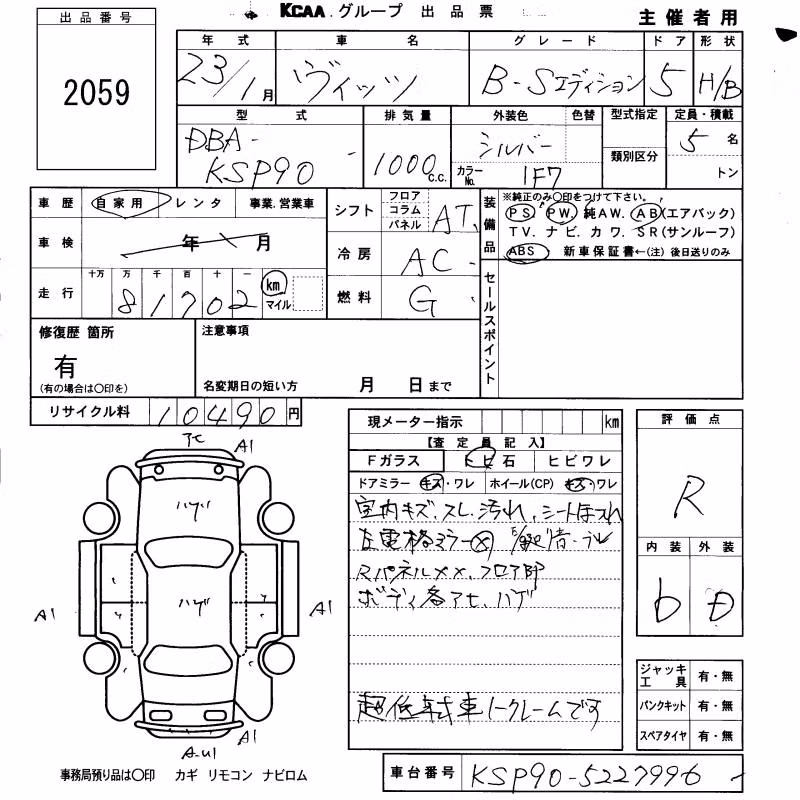 出品番号
KCAA グループ 出品票
主催者用
2059
年式 車名 グレード ドア 形状
23/1月 ヴィッツ B-Sエディション 5 H/B
型式 排気量 外装色 色替 型式指定 定員・積載
DBA-
KSP90 1000 C.C. シルバー 類別区分 5名
カラーNo. 1F7 トン
車歴 自家用 レンタ 事業.営業車
シフト フロア コラム パネル AT
装備品 ※純正のみ〇印をつけて下さい。
PS PW. 純AW. AB(エアバック)
TV. ナビ. カワ. SR(サンルーフ)
ABS 新車保証書←(注)後日送りのみ
車検 年 月
冷房 AC
走行 十万 万 千 百 十 一
81702 km マイル
燃料 G
セールスポイント
修復歴 箇所
有
(有の場合は〇印を)
注意事項
名変期日の短い方 月 日まで
リサイクル料 10490円
現メーター指示 km
【査定員記入】
Fガラス トビ石 ヒビワレ
ドアミラー キズ・ワレ ホイール(CP) キズ・ワレ
室内キズ、スレ、汚れ、シートほつれ
左電格ミラー
Rパネル××、フロア
ボディ各アセ、ハゲ
ノークレームです
評価点
R
内装 外装
b D
ジャッキ工具 有・無
パンクキット 有・無
スペアタイヤ 有・無
アセ A1
ハゲ
ハゲ
A1 A1
A1
事務局預り品は〇印 カギ リモコン ナビロム
車台番号 KSP90-5227996